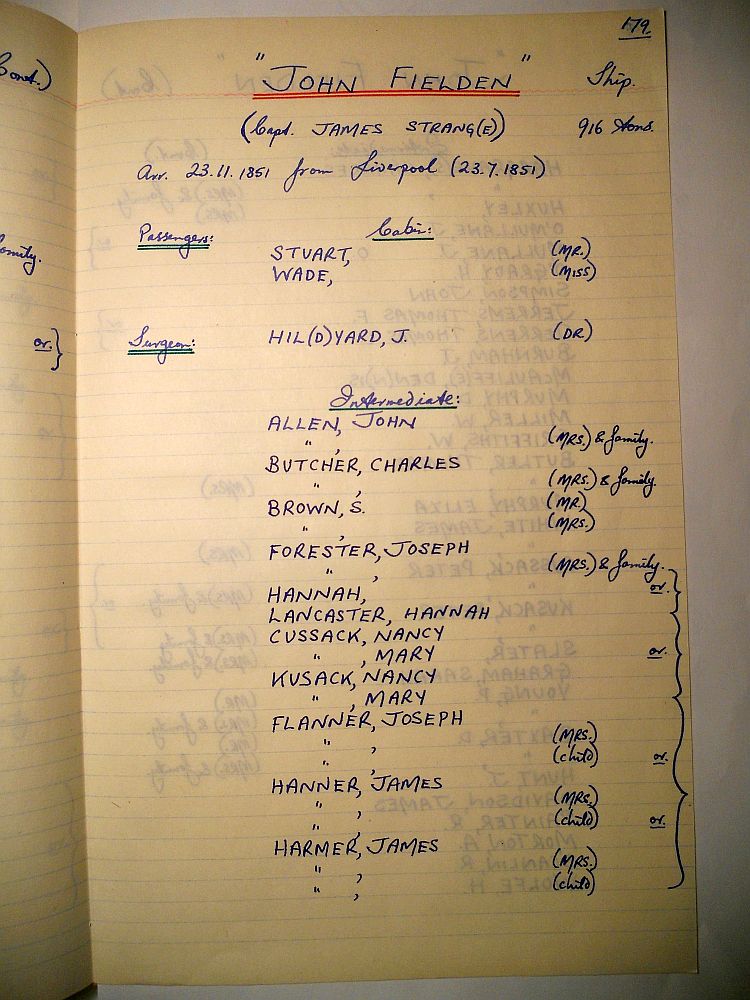 179.
"JOHN FIELDEN" Ship.
(Capt. JAMES STRANG(E)) 916 tons.
Arr. 23.11.1851 from Liverpool (23.7.1851)
Passengers: Cabin:
STUART, (MR.)
WADE, (MISS)
Surgeon: HIL(D)YARD, J. (DR)
Intermediate:
ALLEN, JOHN
" , (MRS.) & family.
BUTCHER, CHARLES
" , (MRS.) & family.
BROWN, S. (MR)
" , (MRS.)
FORESTER, JOSEPH
" , (MRS.) & family.
HANNAH, or.
LANCASTER, HANNAH
CUSSACK, NANCY
" , MARY or.
KUSACK, NANCY
" , MARY
FLANNER, JOSEPH
" , (MRS.)
" , (child) or.
HANNER, JAMES
" , (MRS.)
" , (child) or.
HARMER, JAMES
" , (MRS.)
" , (child)
Cont.)
family.
or.